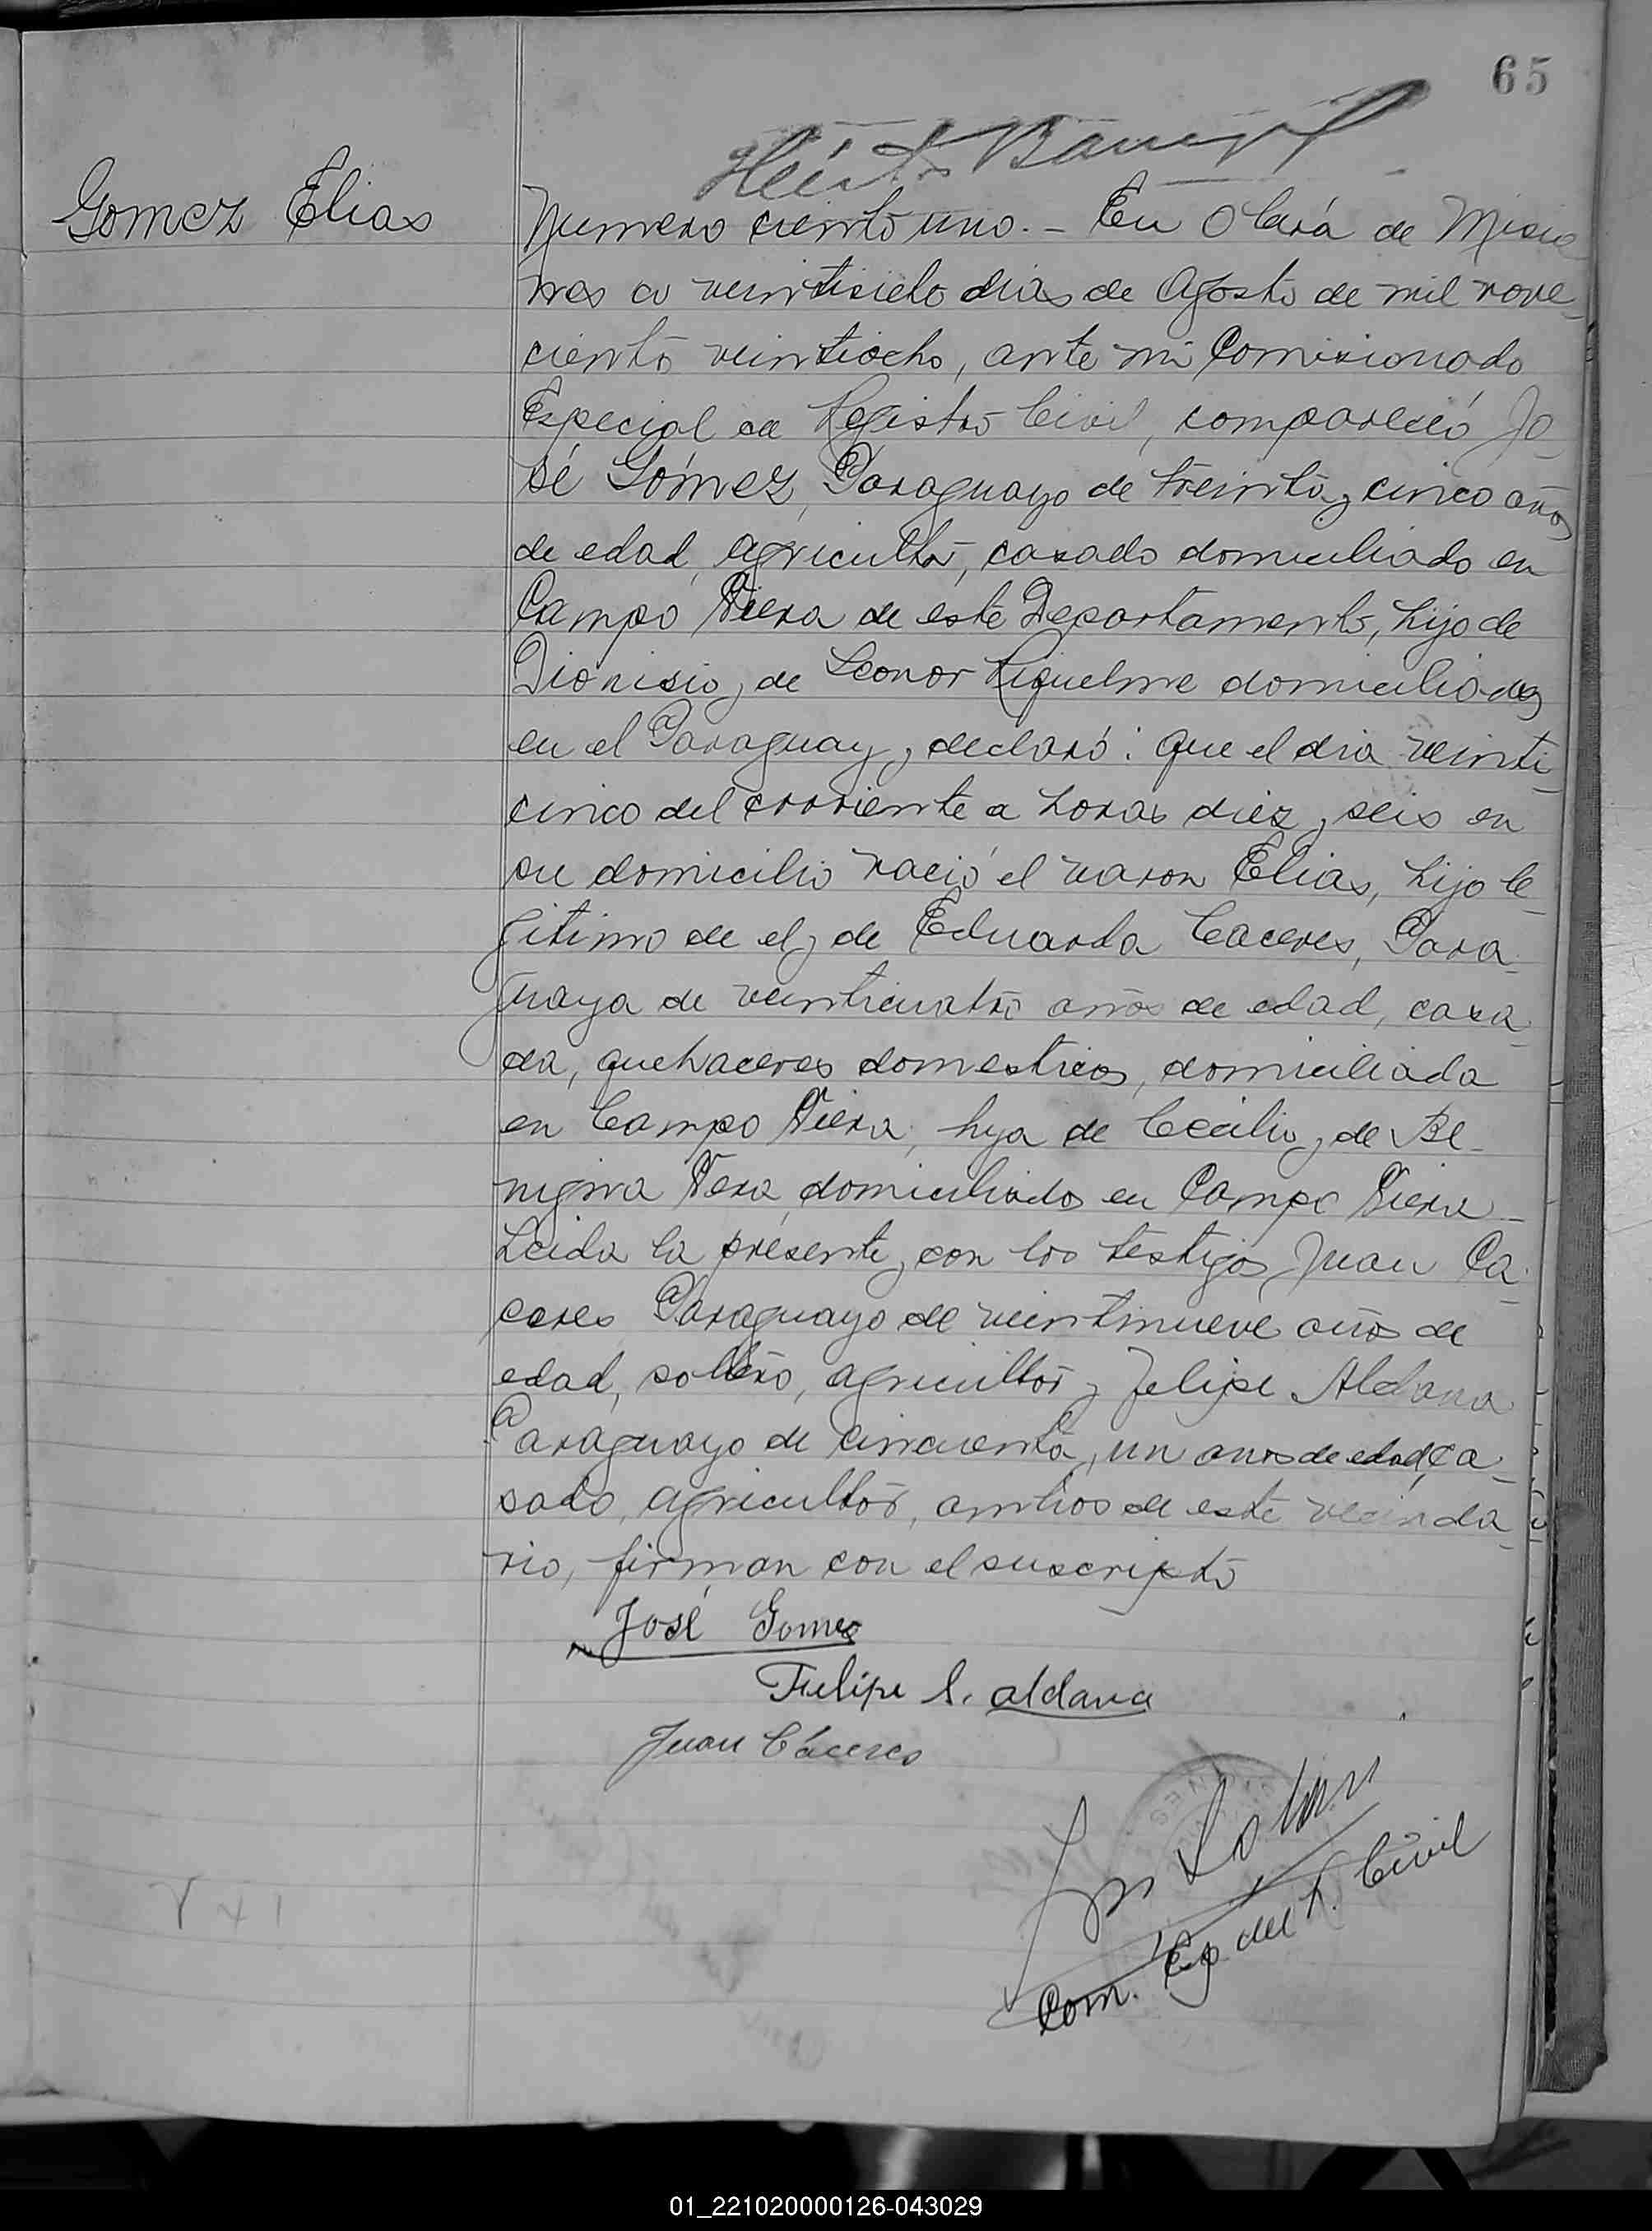 65
Gomez Elias
Numero ciento uno. - En Oberá de Misio
nes a veintisiete dias de Agosto de mil nove-
ciento veintiocho, ante mi Comisionado
Especial de Registro Civil, compareció Jo-
sé Gómez, Paraguayo de treinta y cinco años
de edad, agricultor, casado domiciliado en
Campo Viera de este Departamento, hijo de
Dionisio y de Leonor Riquelme domiciliados
en el Paraguay, declaró: que el dia veinti-
cinco del corriente a horas diez y seis en
su domicilio nació el varon Elias, hijo le-
gitimo de el y de Eduarda Caceres, Para-
guaya de veinticuatro años de edad, casa-
da, quehaceres domesticos, domiciliada
en Campo Viera, hija de Cecilio y de Be-
nigna Vera, domiciliados en Campo Viera -
Leida la presente y con los testigos Juan Ca-
ceres Paraguayo de veintinueve años de
edad, soltero, agricultor y Felipe Aldana
Paraguayo de cincuenta y un anos de edad, ca-
sado, agricultor, ambos de este vecinda-
rio, firman con el suscripto
José Gomez
Felipe S. aldana
Juan Cáceres
Com. Esp. del R. Civil
01_221020000126-043029